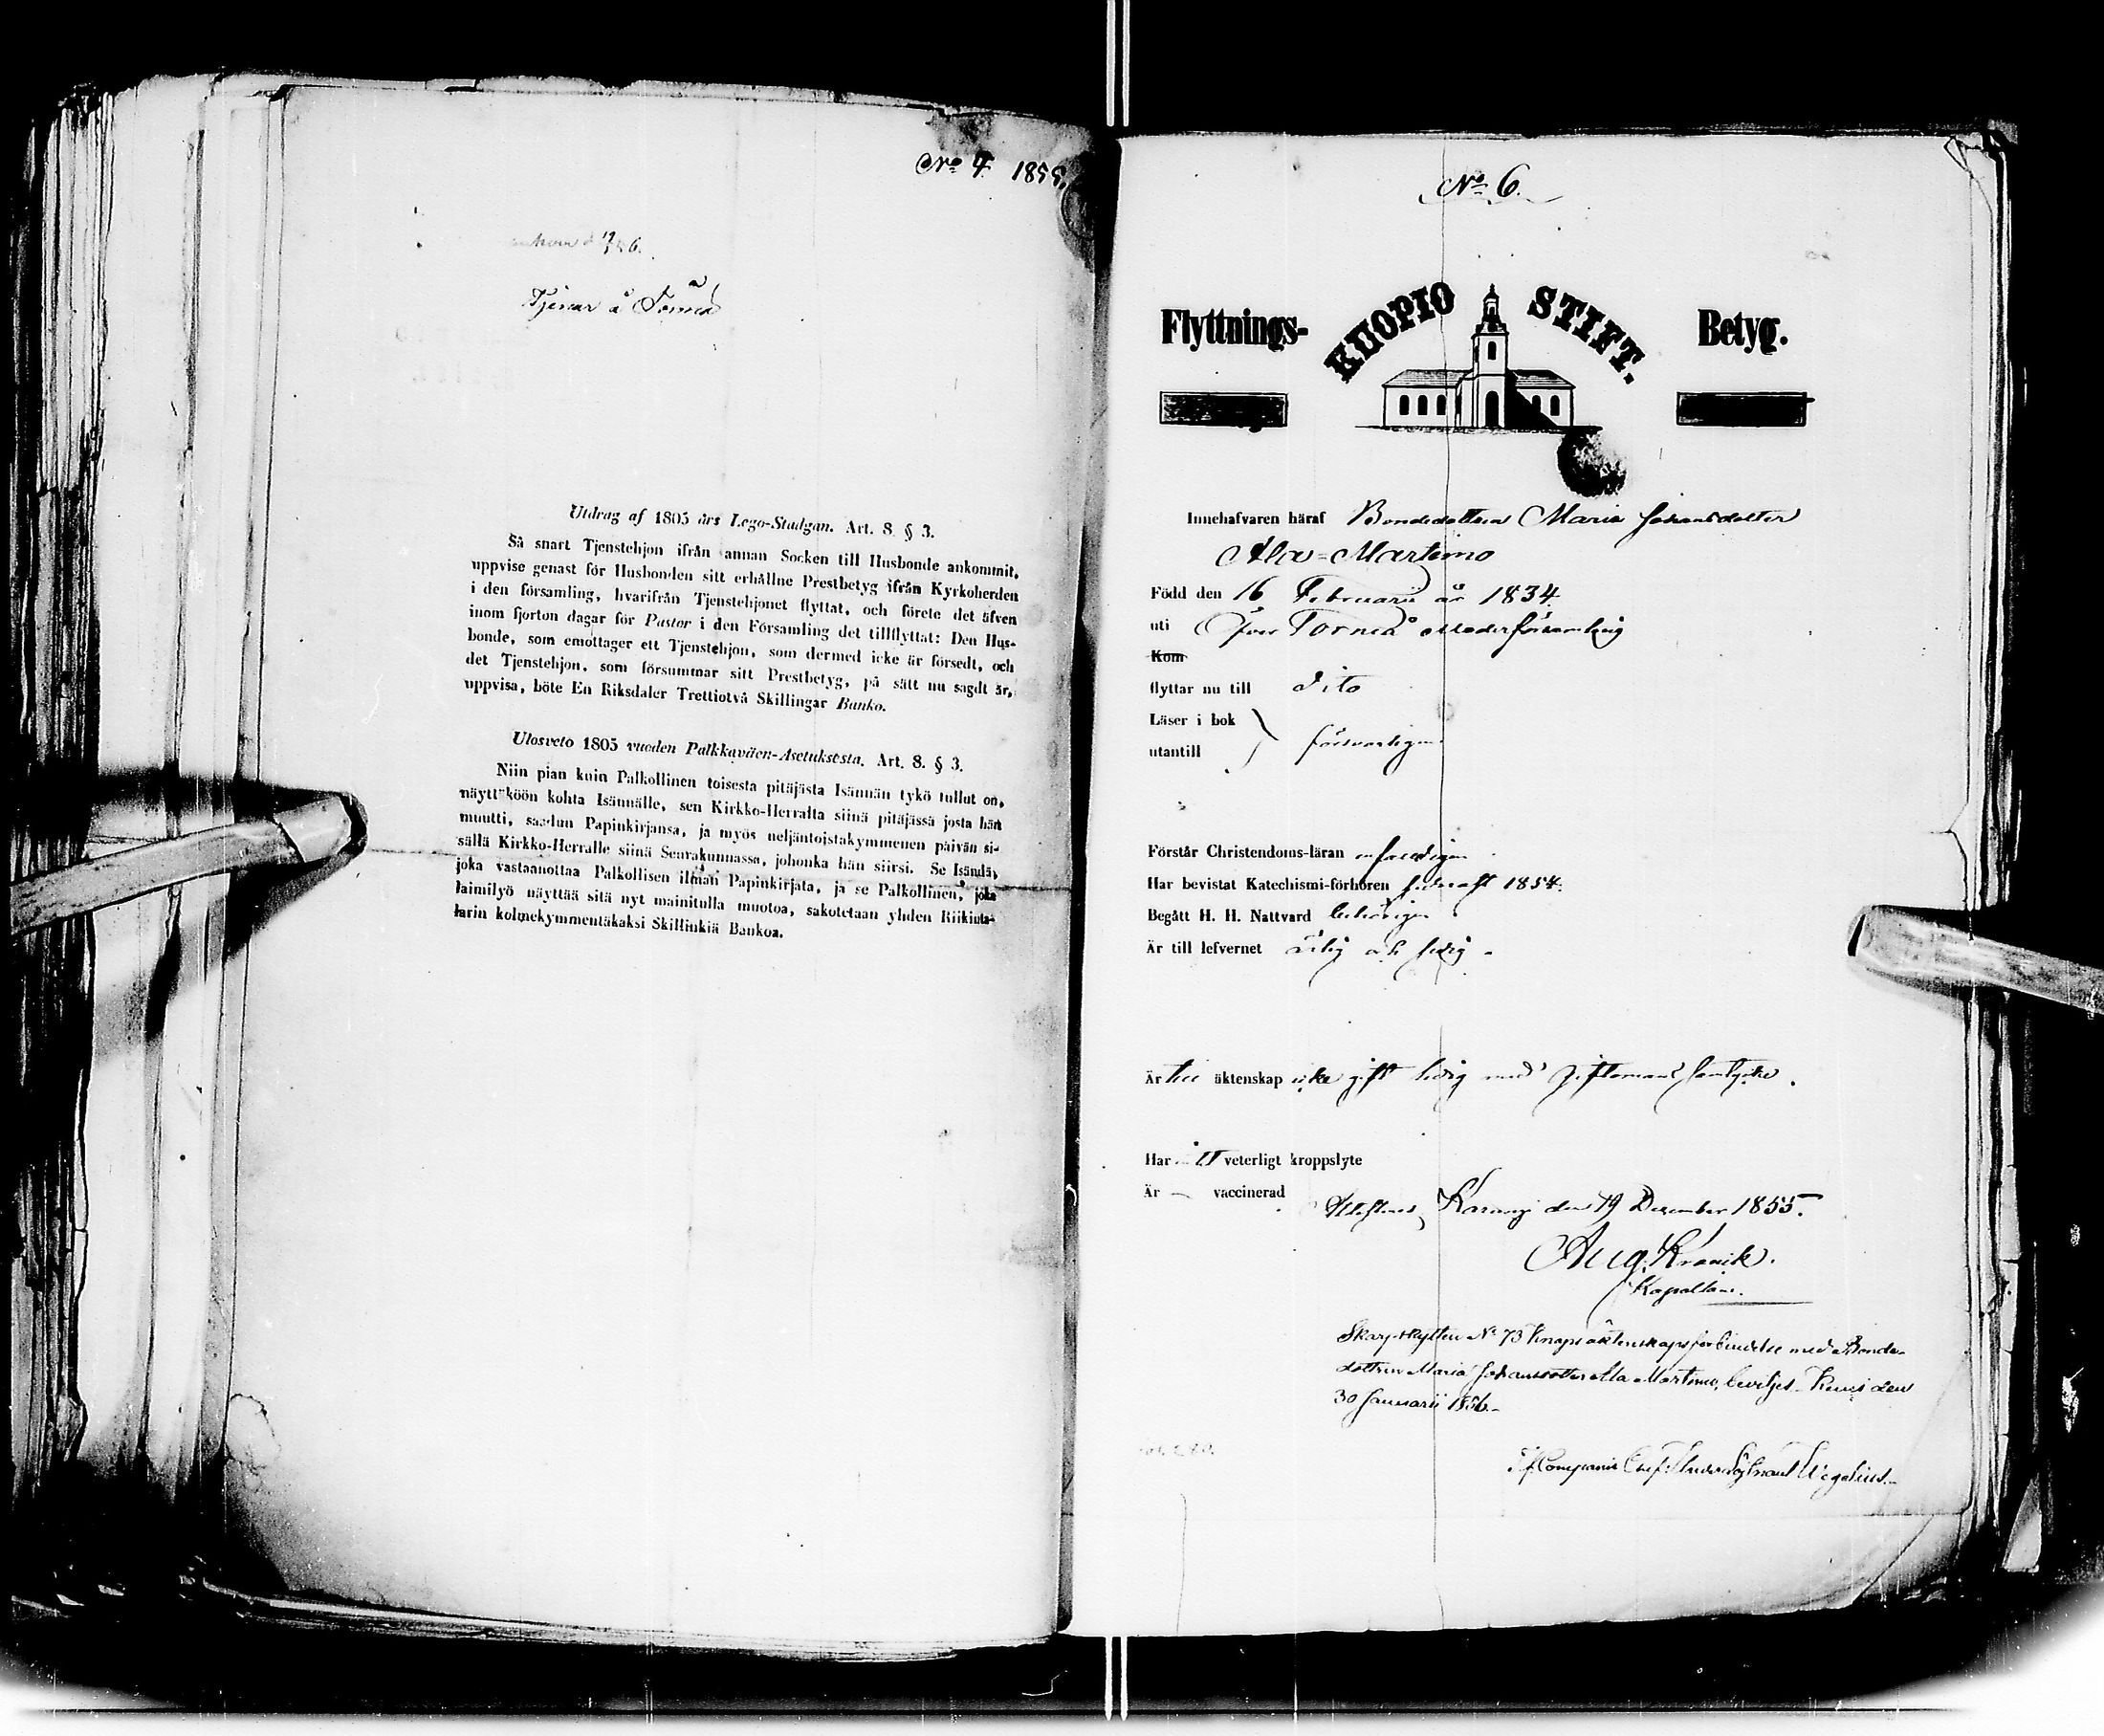 No 4. 1855.
Tjenar å Torneå
Utdrag af 1805 års Lego-Stadgan. Art. 8. § 3.
Så snart Tjenstehjon ifrån annan Socken till Husbonde ankommit,
uppvise genast för Husbonden sitt erhållne Prestbetyg ifrån Kyrkoherden
i den församling, hvarifrån Tjenstehjonet flyttat, och förete det äfven
inom fjorton dagar för Pastor i den Församling det tillflyttat: Den Hus-
bonde, som emottager ett Tjenstehjon, som dermed icke är försedt, och
det Tjenstehjon, som försummar sitt Prestbetyg, på sätt nu sagdt är,
uppvisa, böte En Riksdaler Trettiotvå Skillingar Banko.
Ulosveto 1805 vuoden Palkkaväen-Asetuksesta. Art. 8. § 3.
Niin pian kuin Palkollinen toisesta pitäjästä Isännän tykö tullut on,
näyttäköön kohta Isännälle, sen Kirkko-Herralta siinä pitäjässä josta hän
muutti, saadun Papinkirjansa, ja myös neljäntoistakymmenen päivän si-
sällä Kirkko-Herralle siinä Seurakunnassa, johonka hän siirsi. Se Isäntä,
joka vastaanottaa Palkollisen ilman Papinkirjata, ja se Palkollinen, joka
laimilyö näyttää sitä nyt mainitulla muotoa, sakotetaan yhden Riikinta-
larin kolmekymmentäkaksi Skillinkiä Bankoa.
No 6.
Flyttnings- KUOPIO STIFT. Betyg.
Innehafvaren häraf Bondedottren Maria Johansdotter
Ala-Martimo
Född den 16 Februarii år 1834.
uti Öfver Torneå Moderförsamling
Kom
flyttar nu till dito
Läser i bok
utantill försvarligen
Förstår Christendoms-läran enfaldigen
Har bevistat Katechismi-förhören sednast 1854.
Begått H. H. Nattvard behörigen
Är till lefvernet ärlig och ledig
Är till äktenskap icke gift ledig med Giftomans samtycke.
Har itt veterligt kroppslyte
Är — vaccinerad
Attesteras, Karungi den 19 December 1855.
Aug. Kranik.
Kapellan.
Skarpskytten No 73 Knaps äktenskapsförbindelse med Bonde-
dottren Maria Johansdotter Ala Martimo, beviljes. Kemi den
30 Januarii 1856.
Compani Chef: Wegelius.